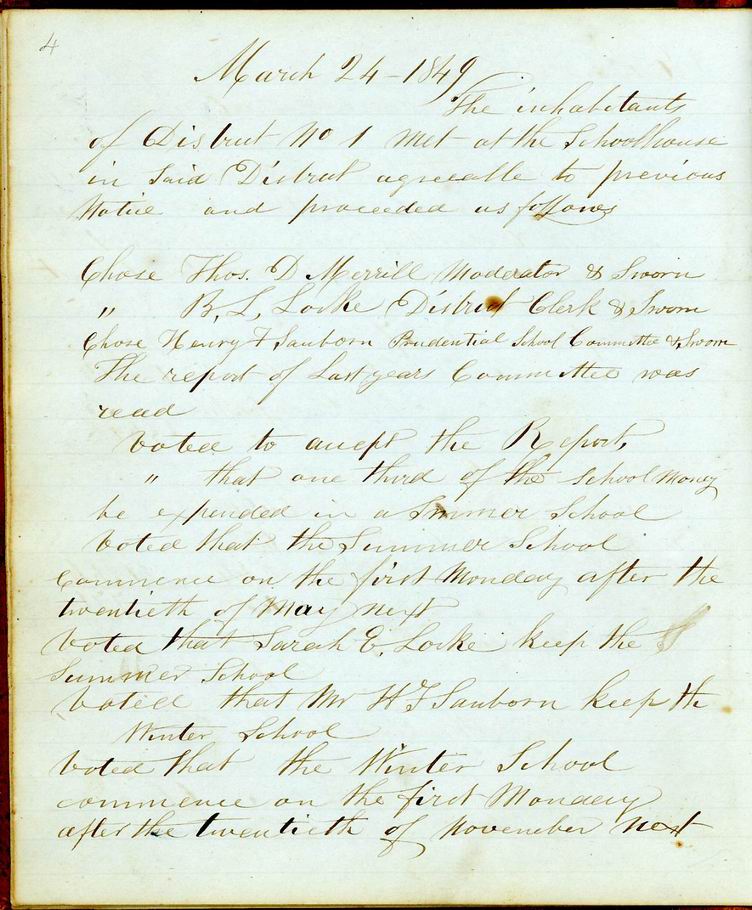 4
March 24 - 1849
The inhabitants
of District No 1 met at the Schoolhouse
in Said District agreeable to previous
Notice and proceeded as follows
Chose Thos. D Merrill Moderator & Sworn
" B. L. Locke District Clerk & Sworn
Chose Henry F Sanborn Prudential School Committee & Sworn
The report of Last years Committee was
read
voted to accept the Report,
" that one third of the School Money
be expended in a Summer School
voted that the Summer School
Commence on the first Monday after the
twentieth of May next
voted that Sarah E. Locke keep the
Summer School
voted that Mr H F Sanborn keep the
Winter School
voted that the Winter School
commence on the first Monday
after the twentieth of November next